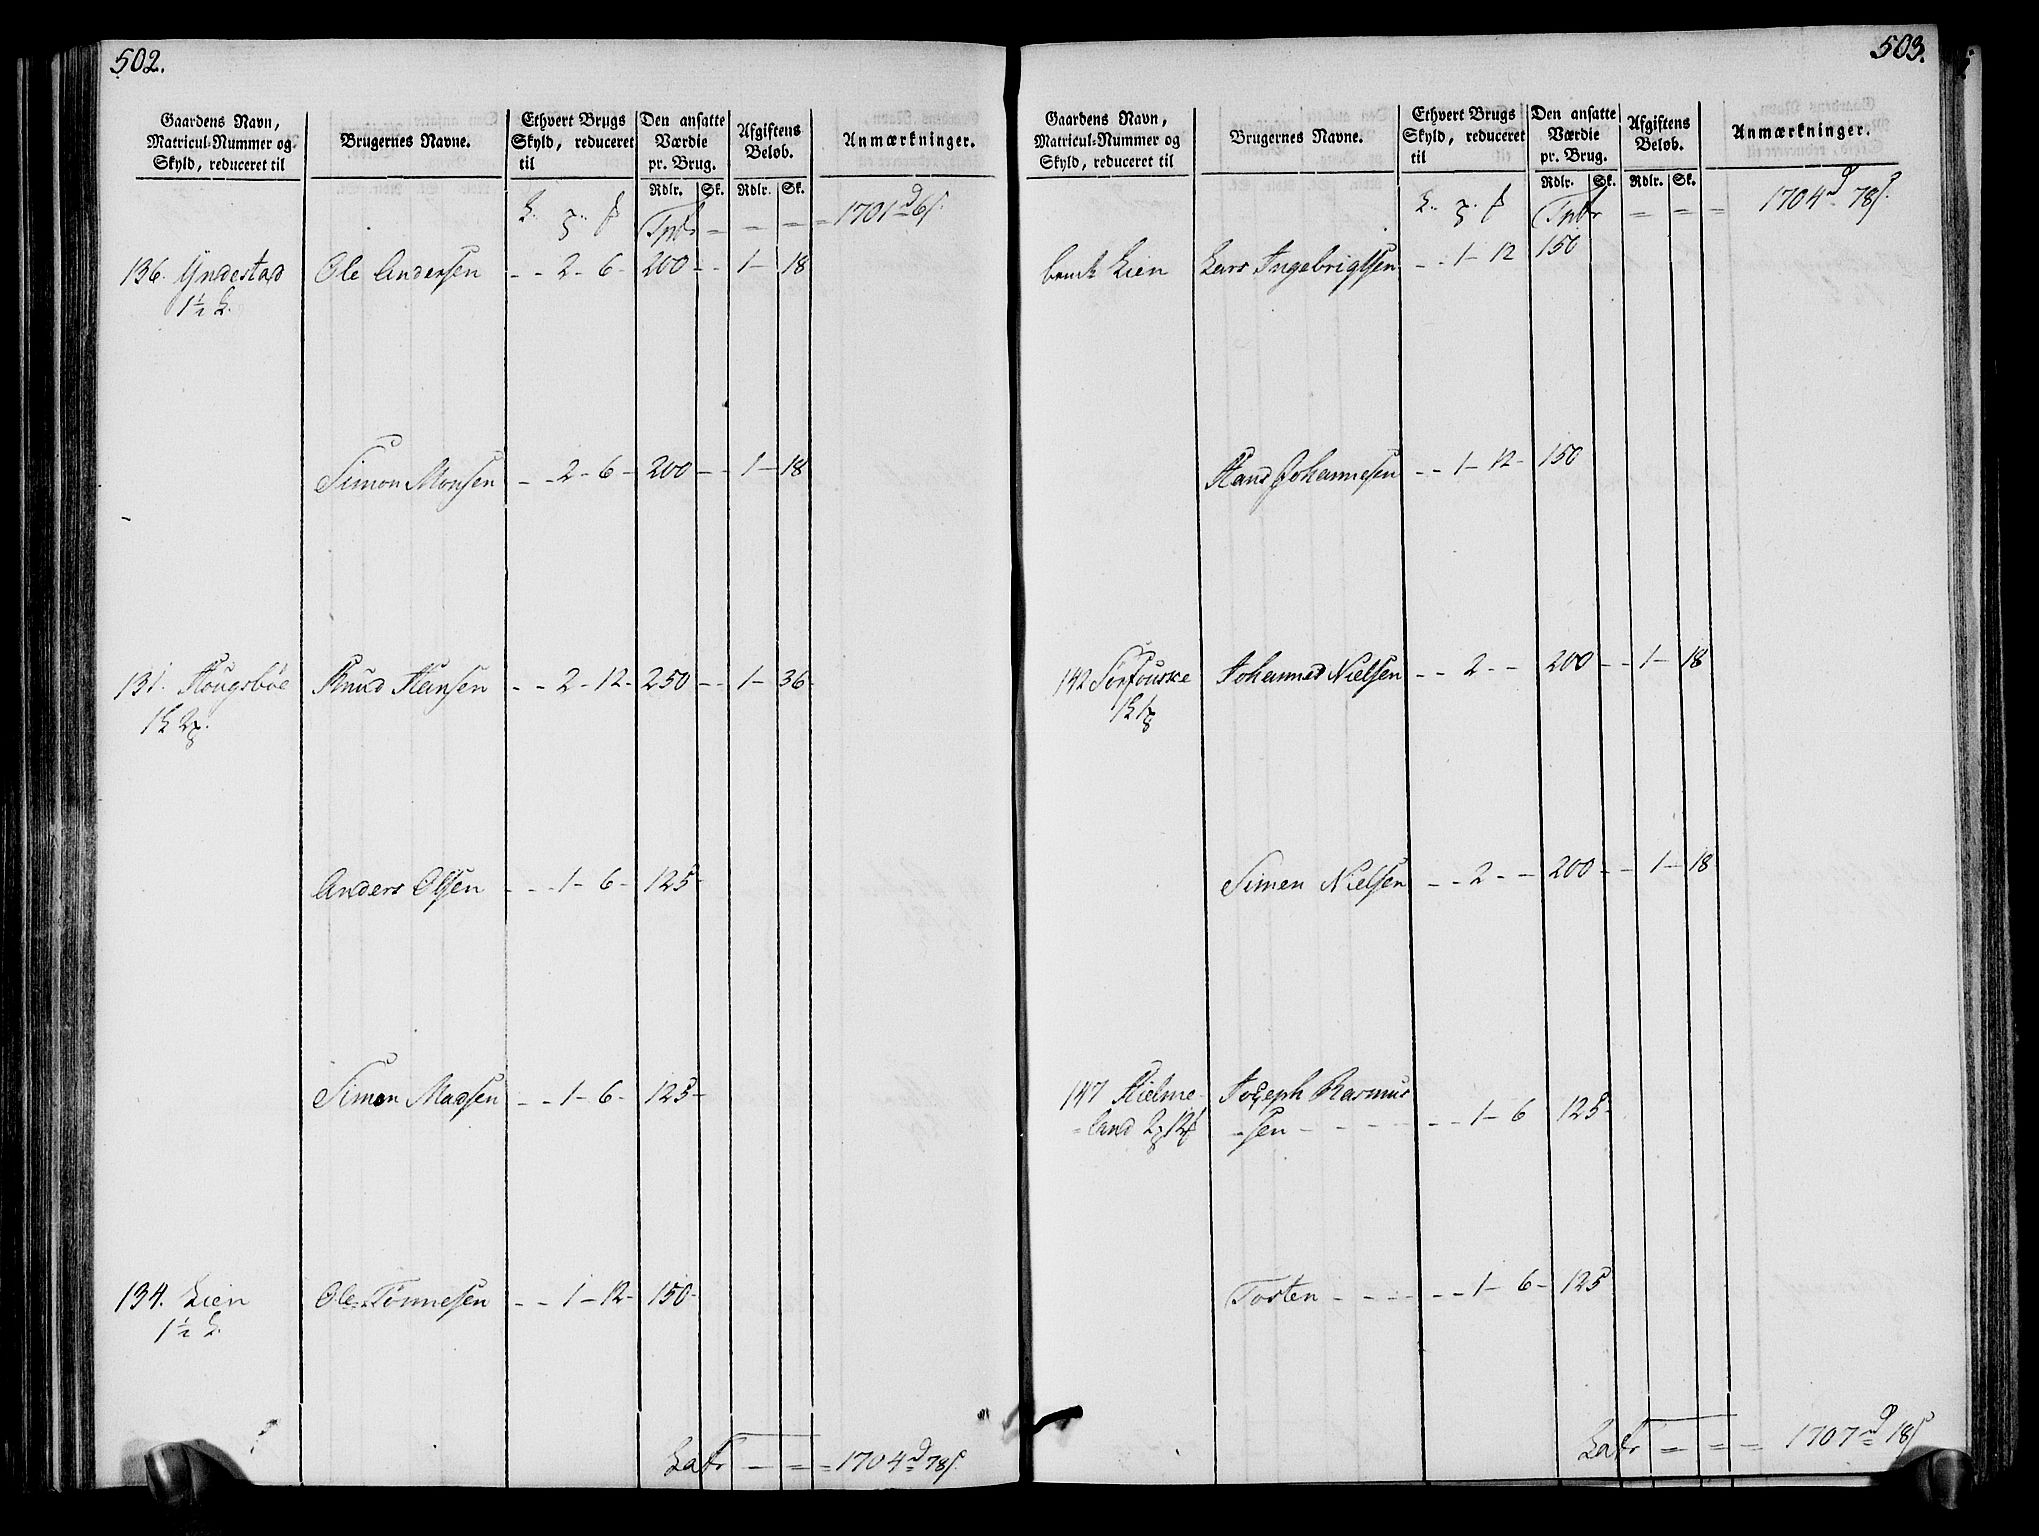 502.
Gaardens Navn, Matricul-Nummer og Skyld, reduceret til | Brugernes Navne. | Ethvert Brugs Skyld, reduceret til | Den ansatte Værdie pr. Brug. Rdlr. Sk. | Afgiftens Beløb. Rdlr. Sk. | Anmærkninger.
Tpt - - - = 1701 d 6 s.
136. Yndestad Ole Andersen - - 2 - 6 - 200 - - 1 - 18
1½ L.
Simon Monsen - - 2 - 6 - 200 - - 1 - 18
131. Hougsbøe Knud Hansen - - 2 - 12 - 250 - - 1 - 36
1 L 2
Anders Olsen - - - 1 - 6 - 125 -
Simon Madsen - - 1 - 6 - 125 -
134. Lien Ole Tønnesen - - 1 - 12 - 150 -
1½ L.
Latr - = = 1704 d 78 s.
503.
Gaardens Navn, Matricul-Nummer og Skyld, reduceret til | Brugernes Navne. | Ethvert Brugs Skyld, reduceret til | Den ansatte Værdie pr. Brug. Rdlr. Sk. | Afgiftens Beløb. Rdlr. Sk. | Anmærkninger.
Tpt = = = 1704 d 78 s.
Lien Lars Ingebrigtsen - - 1 - 12 150
Hans Johannesen - - 1 - 12 - 150
142 Sørfouske Johannes Nielsen - - 2 - - 200 - - 1 - 18
1 L 1
Simen Nielsen - - 2 - - 200 - - 1 - 18
147 Hielme- Joseph Rasmus
land 2 12 -sen - - - - - - 1 - 6 125 -
Tosten - - - - - - 1 - 6 - 125
Latr = = = 1707 d 18 s